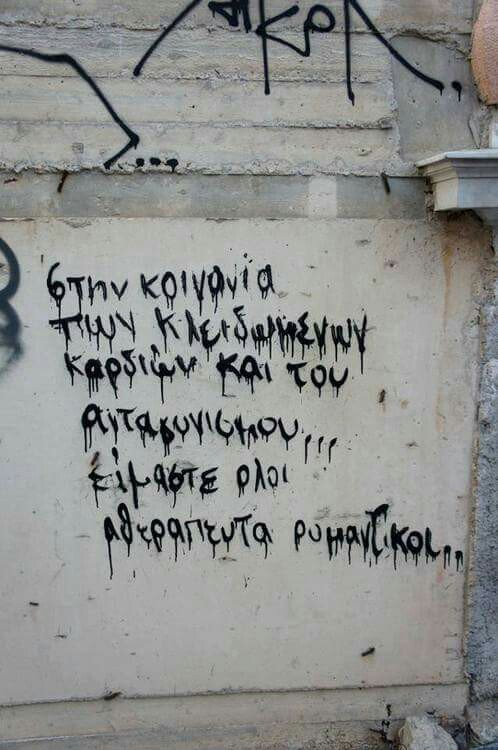 στην κοινωνία
των κλειδωμενων
καρδιών και του
ανταγωνισμου...
είμαστε ολοι
αθεραπευτα ρωμαντικοι..